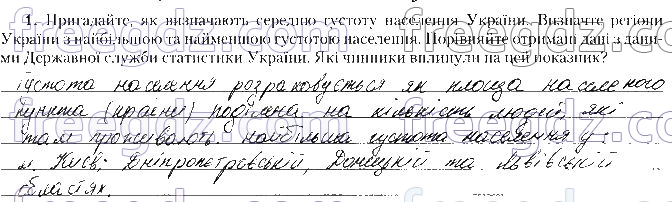 1. Пригадайте, як визначають середню густоту населення України. Визначте регіони
України з найбільшою та найменшою густотою населення. Порівняйте отримані дані з дани-
ми Державної служби статистики України. Які чинники вплинули на цей показник?
густота населення розраховується як площа населеного
пункта (країни) поділена на кількість людей, які
там проживають. найбільша густота населення у
м. Київ; Дніпропетровській, Донецькій та Львівській
областях.